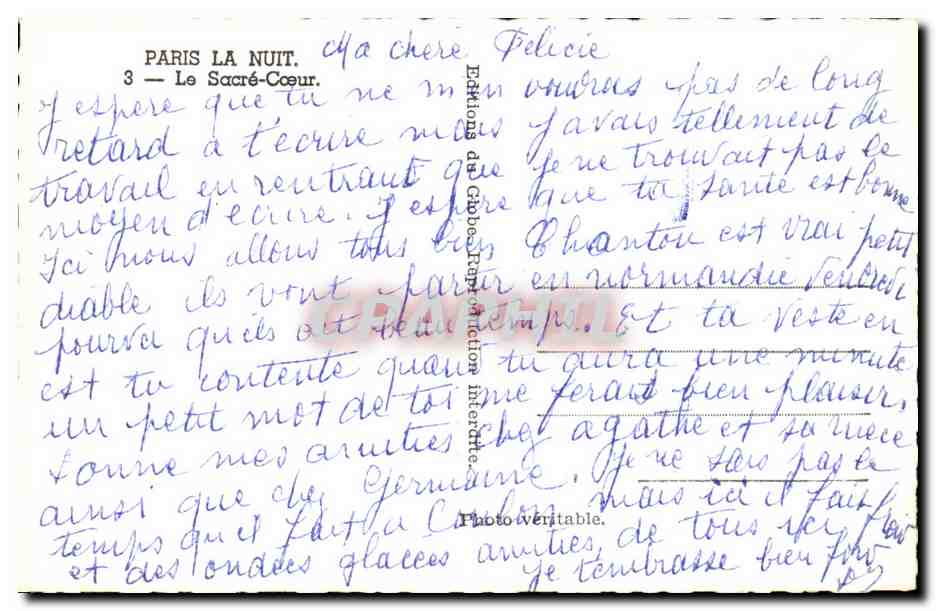 PARIS LA NUIT.
3 — Le Sacré-Cœur.
Ma chere Felicie
J espere que tu ne m en voudras pas de long
retard a t'écrire mais j avais tellement de
travail en rentrant que je ne trouvait pas le
moyen d'ecrire. J espere que ta santé est bonne
Ici nous allons tous bien Chanton est vrai petit
diable ils vont partir en normandie Vendredi
pourvu qu'ils ait beau temps. Et ta veste en
est tu contente quand tu aura une minute
un petit mot de toi me ferait bien plaisir.
donne mes amities chez agathe et sa niece
ainsi que chez Germaine. Je ne sais pas le
temps qu'il fait a mais ici il fait froid
et des ondées glacées amities de tous ici
Je t'embrasse bien fort
Editions du Globe. Reproduction interdite.
Photo véritable.
CPAPHIL